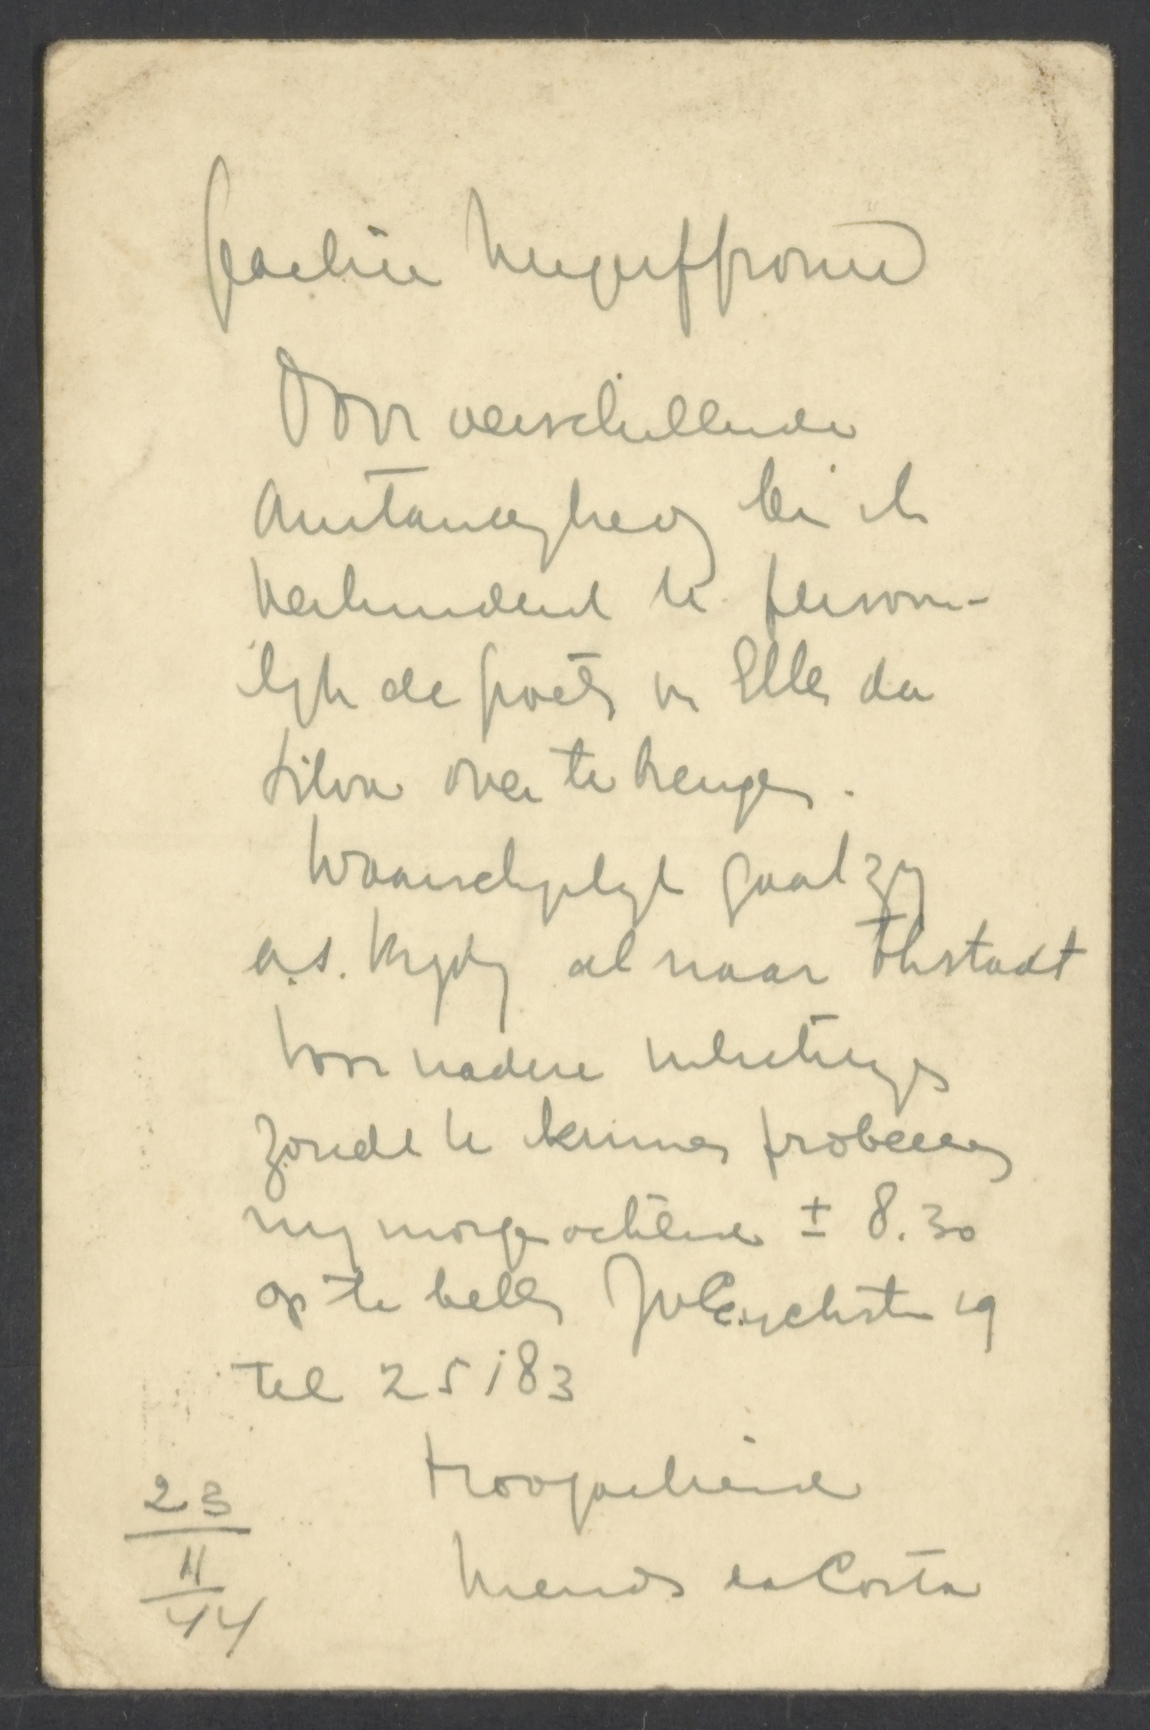 Geachte Mejuffrouw
Door verschillende
omstandigheden ben ik
verhinderd U persoon-
lijk de groeten v. Elly da
Silva over te brengen.
Waarschijnlijk gaat zij
a.s. Vrijdag al naar Thstadt
Voor nadere inlichtingen
zoudt U kunnen probeeren
mij morgenochtend ± 8.30
op te bellen 19
tel 25183
Hoogachtend
Mendes da Costa
23
11
44